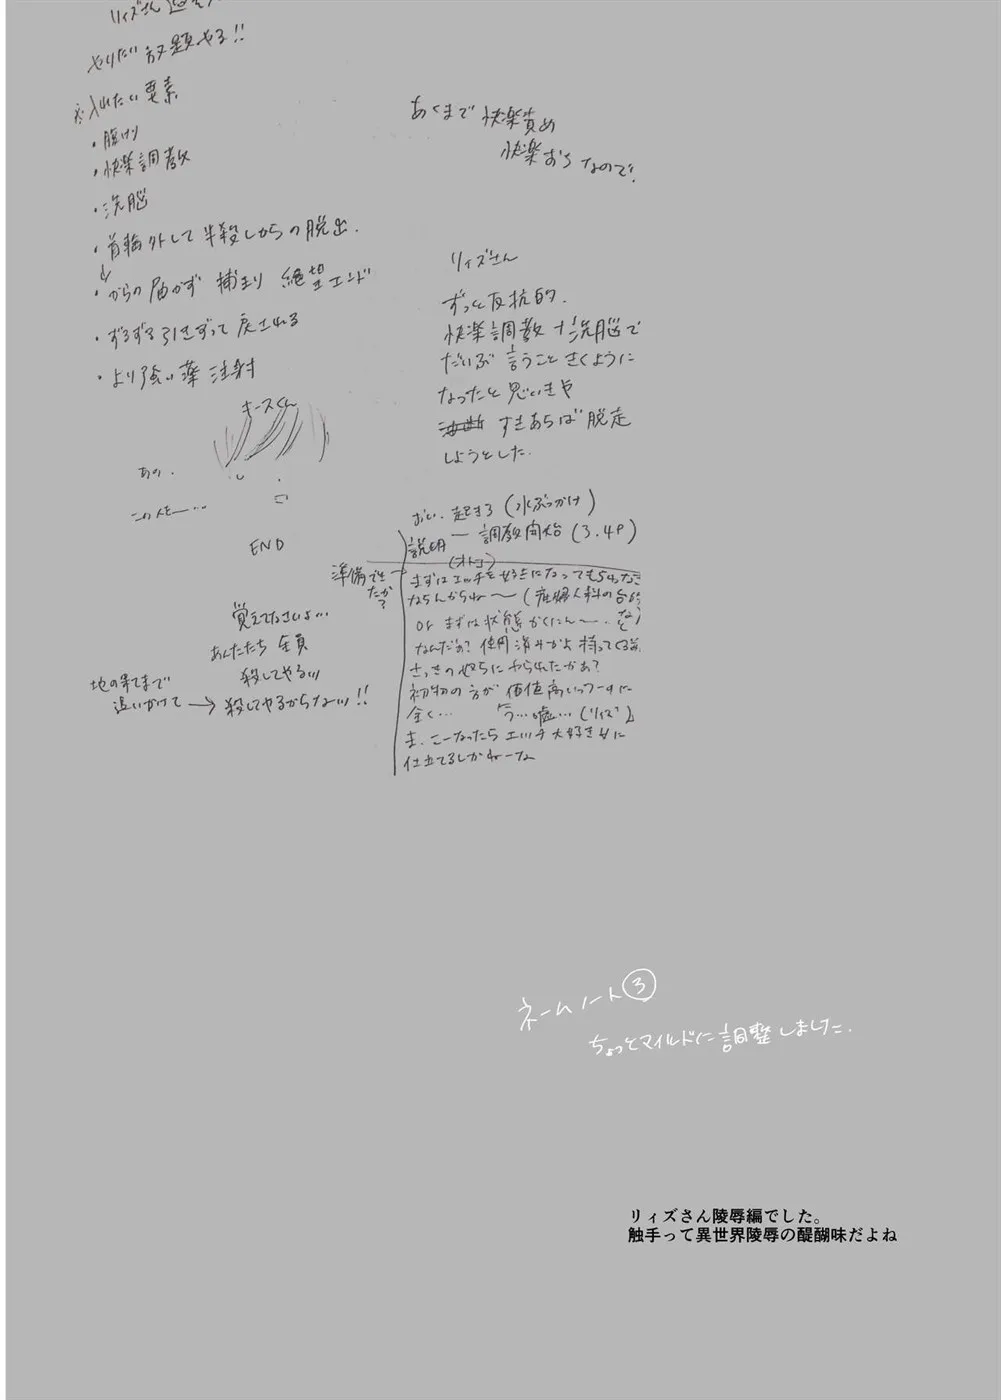 リィズさん
やりたい放題やる!!
※入れたい要素
・腹けり
・快楽調教
・洗脳
・首輪外して半殺しからの脱出.
・からの届かず 捕まり 絶望エンド
・ずるずる引きずって戻される
・より強い薬 注射
キースくん
あの.
この人を—…
END
覚えてなさいよ…
あんたたち 全員
殺してやるッ
地の果てまで
追いかけて → 殺してやるからなッ!!
あくまで快楽責め
快楽おちなので!
リィズさん
ずっと反抗的.
快楽調教+洗脳で
だいぶ 言うこときくように
なったと思いきや
油断 すきあらば脱走
しようとした.
おい.起きろ(水ぶっかけ)
説明 — 調教開始(3.4P)
(オトコ)
準備できたか?
まずはエッチを好きになってもらわなきゃ
ならんからね〜(産婦人科の台
or まずは状態かくにん〜. など
なんだぁ?使用済みかよ 持ってくる前
さっきの奴らにやられたかぁ?
初物の方が 価値高いっつーのに
全く… う…嘘…(リィズ)
ま.こーなったら エッチ大好き女に
仕立てるしかねーな
ネームノート③
ちょっとマイルドに調整しました.
リィズさん陵辱編でした。
触手って異世界陵辱の醍醐味だよね